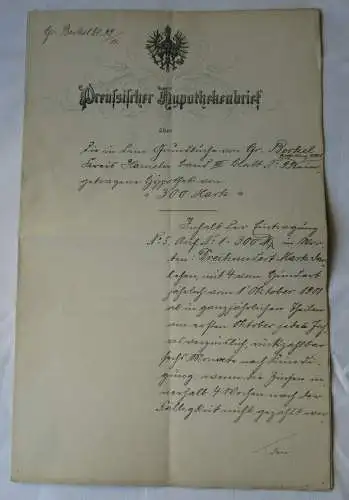 Gr. Berkel Bl. 
Preussischer Hypothekenbrief
über
die in dem Grundbuche von Gr. Berkel
Kreis Hameln Band III Blatt N: ein
getragene Hypothek von
" 300 Mark "
Inhalt der Eintragung
N: 3. Auf N: 1. 300 M, in Wor
ten: Dreihundert Mark Dar
lehen, mit 4 vom Hundert
jährlich vom 1. Oktober 1901
ab in ganzjährlichen Theilen
am ersten Oktober jeden Jah
res verzinslich, rückzahlbar
sechs Monate nach Kündi
gung wenn die Zinsen in
nerhalb 4 Wochen nach der
Fälligkeit nicht gezahlt wer
den